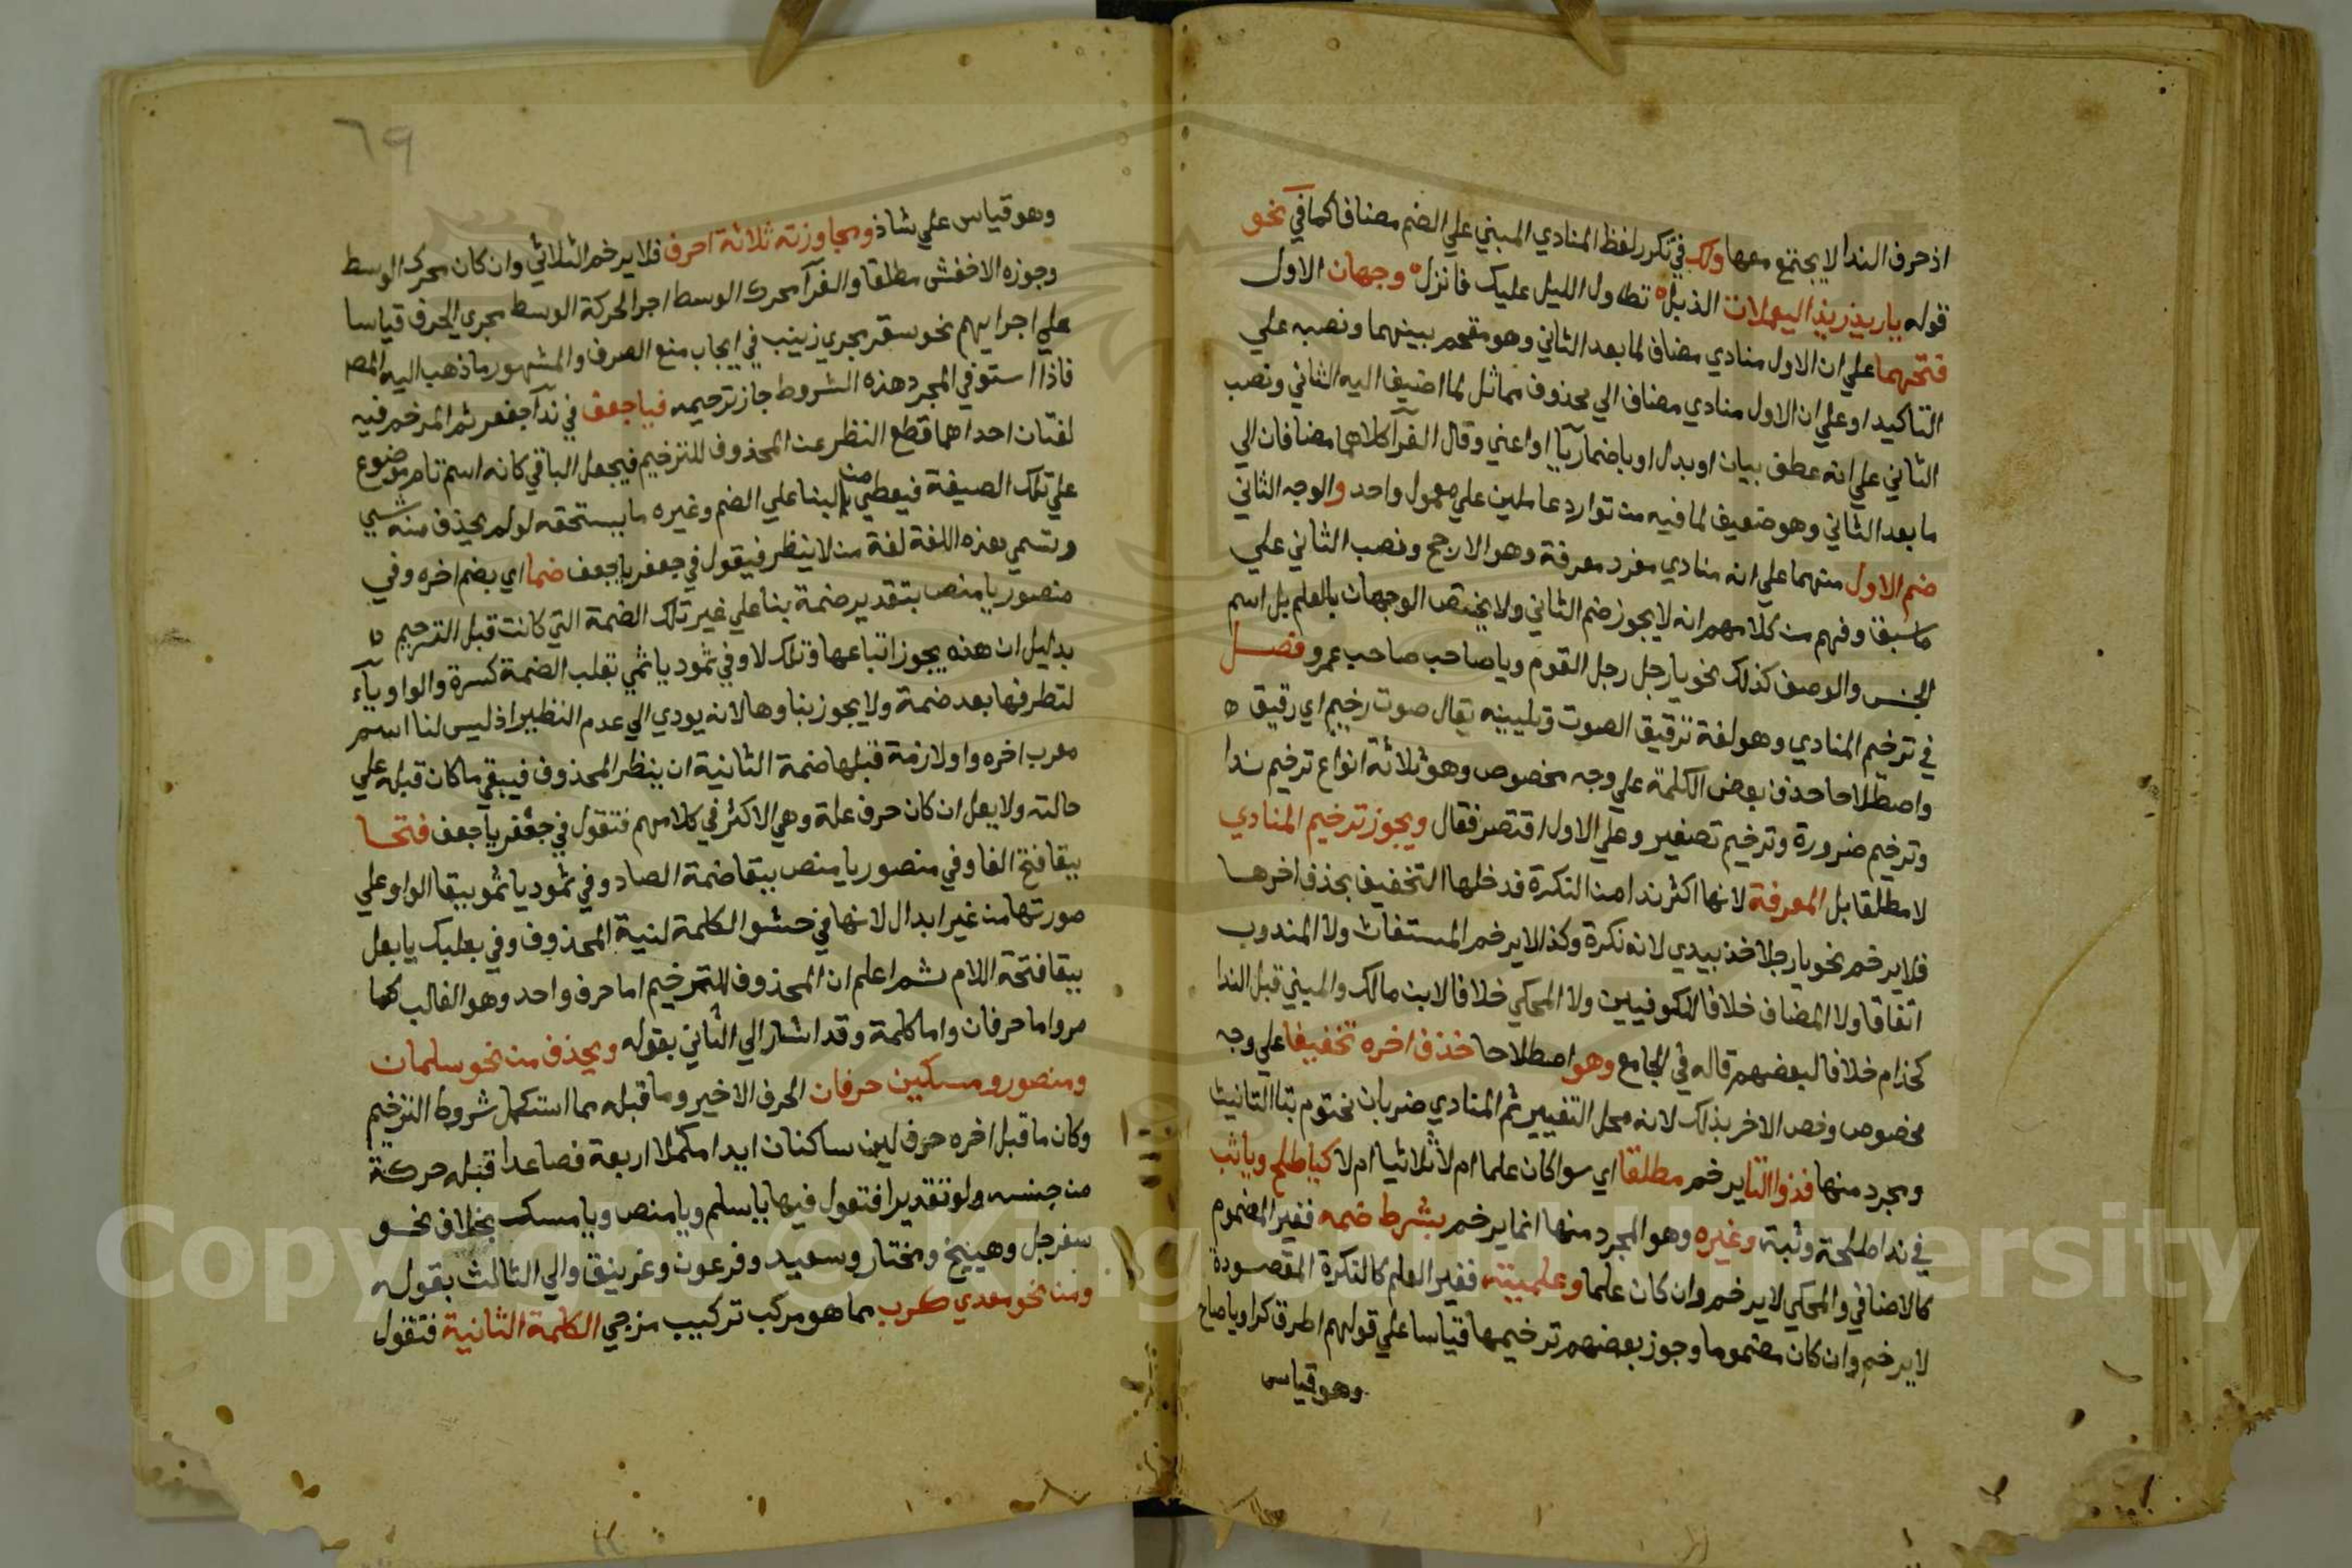 اذ حرف الندا لا يجتمع معها ولك في تكرر لفظ المنادي المبني علي الضم مضافا كما في نحو
قوله يا زيد زيد اليعملات الذبل تطاول الليل عليك فانزل وجهان الاول
فتحهما علي ان الاول منادي مضاف لما بعد الثاني وهو مقحم بينهما ونصبه علي
التاكيد او علي ان الاول منادي مضاف الي محذوف مماثل لما اضيف اليه الثاني ونصب
الثاني علي انه عطف بيان او بدل او باضمار يا او اعني وقال الفرآ كلاهما مضافان الي
ما بعد الثاني وهو ضعيف لما فيه من توارد عاملين علي معمول واحد والوجه الثاني
ضم الاول منهما علي انه منادي مفرد معرفة وهو الارجح ونصب الثاني علي
ما سبق وفهم من كلامهم انه لا يجوز ضم الثاني ولا يختص الوجهان بالعلم بل اسم
الجنس والوصف كذلك نحو يا رجل رجل القوم ويا صاحب صاحب عمرو فصل
في ترخيم المنادي وهو لغة ترقيق الصوت وتليينه يقال صوت رخيم اي رقيق ه
واصطلاحا حذف بعض الكلمة علي وجه مخصوص وهو ثلاثة انواع ترخيم ندا
وترخيم ضرورة وترخيم تصغير وعلي الاول اقتصر فقال ويجوز ترخيم المنادي
لا مطلقا بل المعرفة لانها اكثر ندا من النكرة فدخلها التخفيف بحذف اخرها
فلا يرخم نحو يا رجلا خذ بيدي لانه نكرة وكذا لا يرخم المستغاث ولا المندوب
اتفاقا ولا المضاف خلافا للكوفيين ولا المحكي خلافا لابن مالك والمبني قبل الندا
كحذام خلافا لبعضهم قاله في الجامع وهو اصطلاحا حذف اخره تخفيفا علي وجه
مخصوص وخص الاخر بذلك لانه محل التغيير ثم المنادي ضربان مختوم بتا التانيث
ومجرد منها فذوا التا يرخم مطلقا اي سوا كان علما ام لا ثلاثيا ام لا كيا طلح ويا ثب
في ندا طلحة وثبة وغيره وهو المجرد منها انما يرخم بشرط ضمه فغير المضموم
كالاضافي والمحكي لا يرخم وان كان علما وعلميته فغير العلم كالنكرة المقصودة
لا يرخم وان كان مضموما وجوز بعضهم ترخيمها قياسا علي قولهم اطرق كرا ويا صاح
وهو قياس
٦٩
وهو قياس علي شاذ ومجاوزته ثلاثة احرف فلا يرخم الثلاثي وان كان محرك الوسط
وجوزه الاخفش مطلقا والفرآ محرك الوسط اجرا لحركة الوسط مجري الحرف قياسا
علي اجرايهم نحو سقر مجري زينب في ايجاب منع الصرف والمشهور ما ذهب اليه المص
فاذا استوفي المجرد هذه الشروط جاز ترخيمه فيا جعف في ندآ جعفر ثم المرخم فيه
لغتان احداهما قطع النظر عن المحذوف للترخيم فيجعل الباقي كانه اسم تام موضوع
علي تلك الصيغة فيعطي من البنا علي الضم وغيره ما يستحقه لو لم يحذف منه شي
وتسمي هذه اللغة لغة من لا ينتظر فيقول في جعفر يا جعف ضما اي بضم اخره وفي
منصور يا منص بتقدير ضمة بنا علي غير تلك الضمة التي كانت قبل الترخيم ه
بدليل ان هذه يجوز اتباعها وتلك لا وفي ثمود يا ثمي بقلب الضمة كسرة والواو يآء
لتطرفها بعد ضمة ولا يجوز بناوها لانه يودي الي عدم النظير اذ ليس لنا اسم
معرب اخره واو لازمة قبلها ضمة الثانية ان ينظر المحذوف فيبقي ما كان قبله علي
حالته ولا يعل ان كان حرف علة وهي الاكثر في كلامهم فتقول في جعفر يا جعف فتحا
ببقا فتح الفا وفي منصور يا منص ببقا ضمة الصاد وفي ثمود يا ثمو ببقا الواو علي
صورتها من غير ابدال لانها في حشو الكلمة لنية المحذوف وفي بعلبك يا بعل
ببقا فتحة اللام ثم اعلم ان المحذوف للترخيم اما حرف واحد وهو الغالب كما
مر واما حرفان واما كلمة وقد اشار الي الثاني بقوله ويحذف من نحو سلمان
ومنصور ومسكين حرفان الحرف الاخير وما قبله مما استكمل شروط الترخيم
وكان ما قبل اخره حرف لين ساكنان ايدا مكملا اربعة فصاعدا قبله حركة
من جنسه ولو تقديرا فتقول فيها يا سلم ويا منص ويا مسك بخلاف نحو
سفرجل وهبيخ ومختار وسعيد وفرعون وغرنيق والي الثالث بقوله
ومن نحو معدي كرب مما هو مركب تركيب مزجي الكلمة الثانية فتقول
Copyright © King Saud University